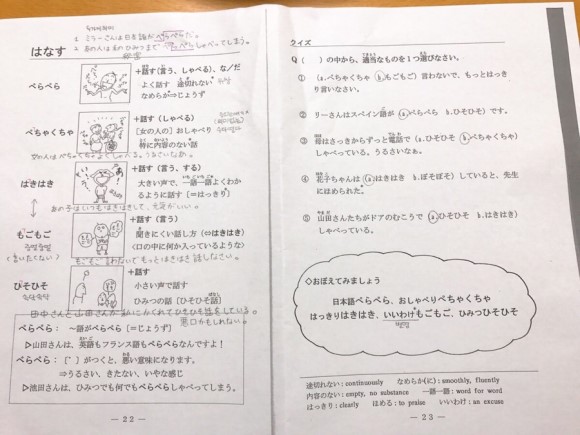 1 ミラーさんは日本語がぺらぺらだ。
2 あの人は人のひみつまでぺらぺらしゃべってしまう。
はなす
ぺらぺら
+話す(言う、しゃべる)、な/だ
よく話す 途切れない
なめらか=じょうず
ぺちゃくちゃ
+話す(しゃべる)
[女の人の]おしゃべり
特に内容のない話
はきはき
+話す(言う、する)
大きい声で、一語一語よくわか
るように話す[=はっきり]
あの子はいつもはきはきして、元気がいい。
もごもご
+話す(言う)
聞きにくい話し方(⇔はきはき)
〈口の中に何か入っているような〉
(言いたくない)
もごもご言わないでもっとはきはき話しなさい。
ひそひそ
+話す
小さい声で話す
ひみつの話[ひそひそ話]
ぺらぺら: ~語がぺらぺら[=じょうず]
▷山田さんは、英語もフランス語もぺらぺらなんですよ!
ぺらぺら: [゜]がつくと、悪い意味になります。
⇒うるさい、きたない、いやな感じ
▷池田さんは、ひみつでも何でもぺらぺらしゃべってしまう。
— 22 —
クイズ
Q ( )の中から、適当なものを1つ選びなさい。
① (a.ぺちゃくちゃ b.もごもご)言わないで、もっとはっき
り言いなさい。
② リーさんはスペイン語が(a.ぺらぺら b.ひそひそ)です。
③ 母はさっきからずっと電話で(a.ひそひそ b.ぺちゃくちゃ)
しゃべっている。うるさいなぁ。
④ 花子ちゃんは(a.はきはき b.ぼそぼそ)していると、先生
にほめられた。
⑤ 山田さんたちがドアのむこうで(a.ひそひそ b.はきはき)
しゃべっている。
◇おぼえてみましょう
日本語ぺらぺら、おしゃべりぺちゃくちゃ
はっきりはきはき、いいわけもごもご、ひみつひそひそ
途切れない:continuously なめらか(に):smoothly, fluently
内容のない:empty, no substance 一語一語:word for word
はっきり:clearly ほめる:to praise いいわけ:an excuse
— 23 —